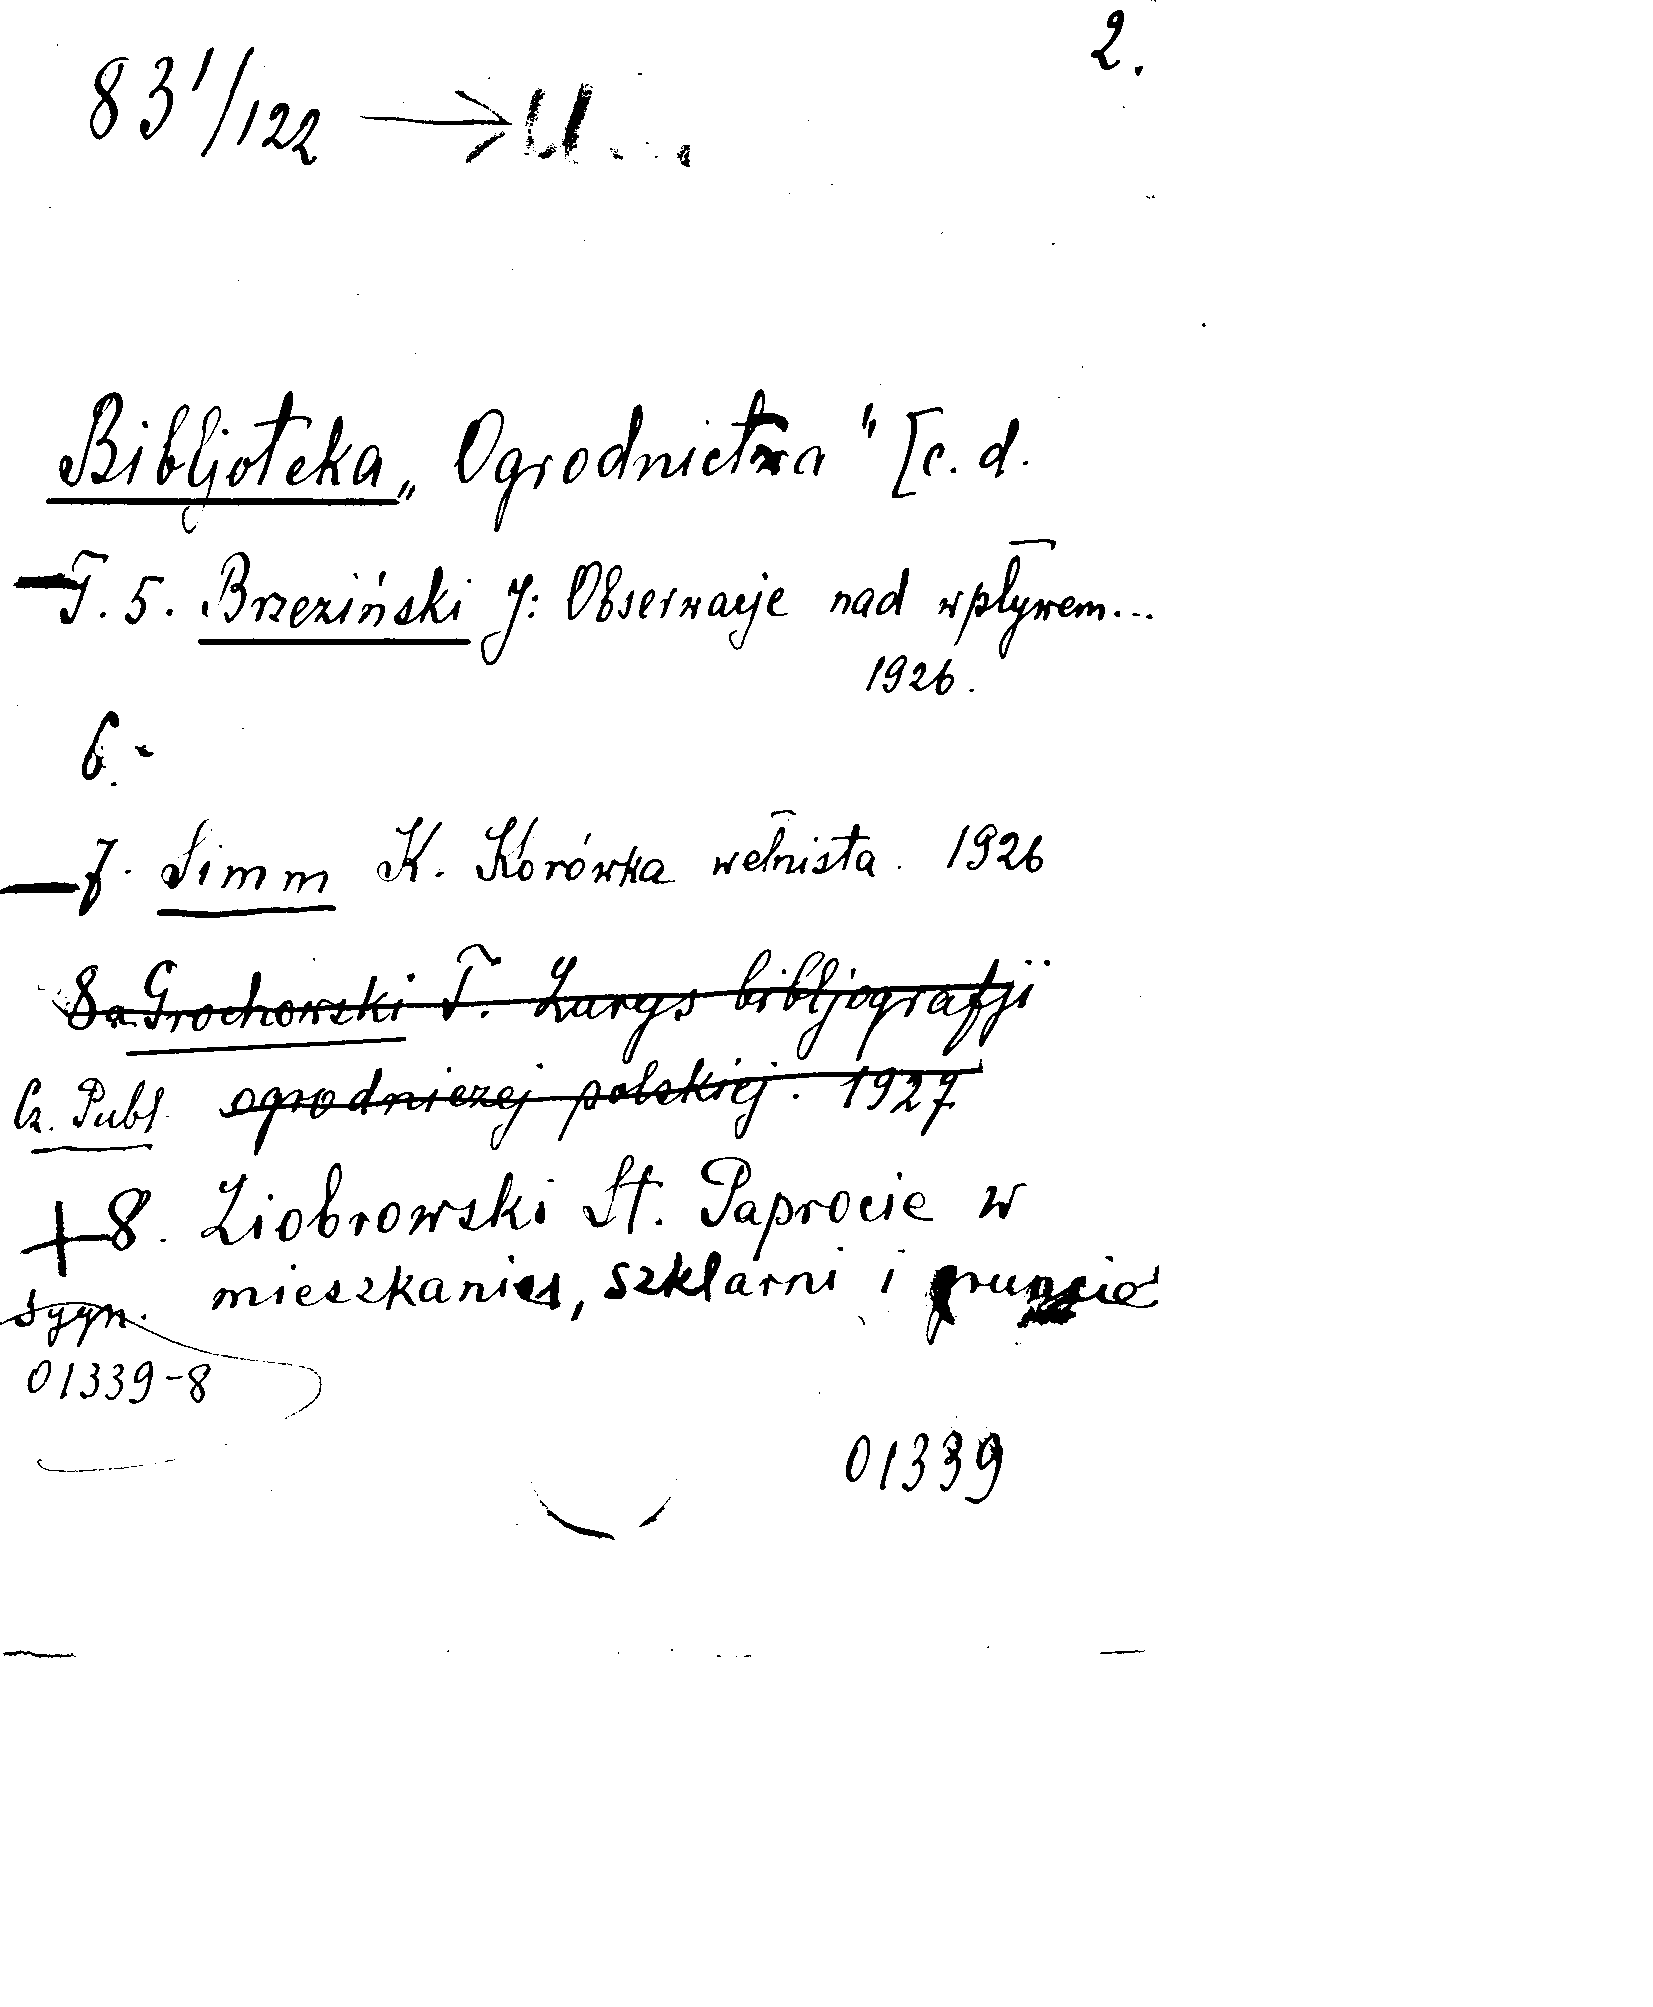 2.
83'/122 → U...
Bibljoteka „Ogrodnictwa" [c. d.
T. 5. Brzeziński J: Obserwacje nad wpływem...
1926.
6. -
7. Simm K. Korówka wełnista. 1926
8a Grochowski T. Zarys bibljografji
Cz. Publ. ogrodniczej polskiej. 1927
+ 8. Ziobrowski St. Paprocie w
sygn. mieszkaniu, szklarni i gruncie
01339-8
01339